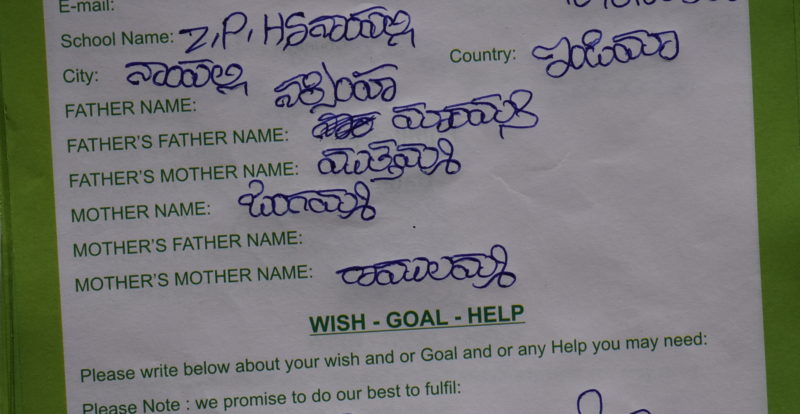 E-mail:
School Name: Z.P.HS నాయపల్లి
City: నాయపల్లి Country: ఇండియా
FATHER NAME:
FATHER'S FATHER NAME:
FATHER'S MOTHER NAME: ముత్తెమ్మ
MOTHER NAME:
MOTHER'S FATHER NAME:
MOTHER'S MOTHER NAME: రాములమ్మ
WISH - GOAL - HELP
Please write below about your wish and or Goal and or any Help you may need:
Please Note : we promise to do our best to fulfil: